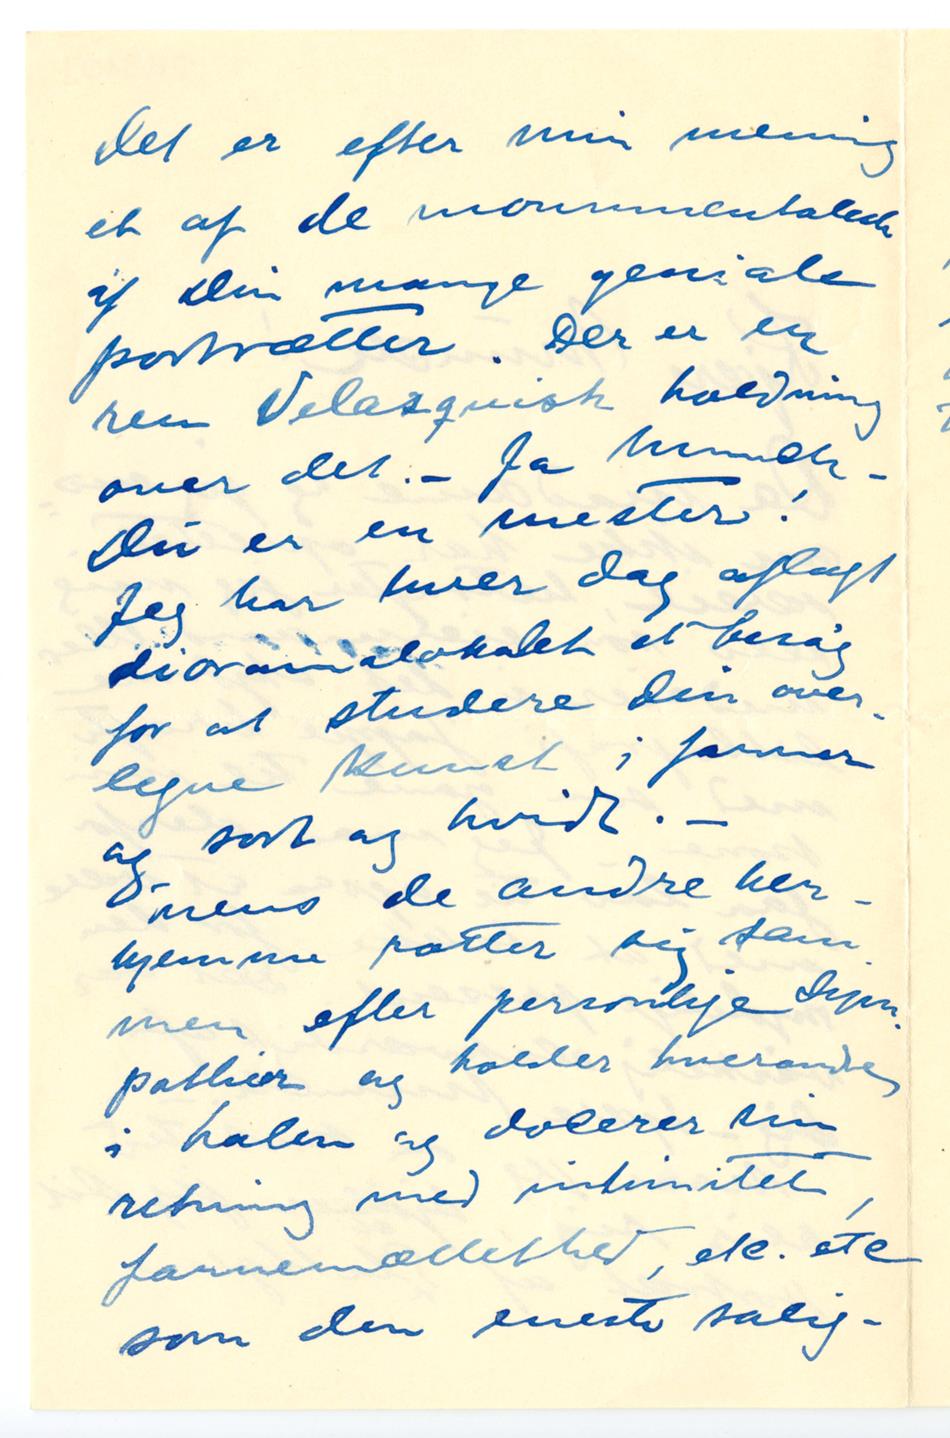 Det er efter min mening
et af de monumentaleste
af Din mange geniale
portrætter. Der er en
ren Velazquisk holdning
over det. – Ja Munch –
Du er en mester!
Jeg har hver dag aflagt
dioramalokalet et besøg
for at studere Din over-
legne kunst i farver
og sort og hvidt. –
og mens de andre her-
hjemme rotter sig sam
men efter personlige sym-
pathier og holder hverandre
i halen og docerer sin
retning med intimitet,
farvemættethed, etc. etc
som den eneste salig-